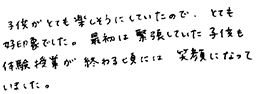 子供がとても楽しそうにしていたので、とても
好印象でした。最初は緊張していた子供も
体験授業が終わる頃には笑顔になって
いました。